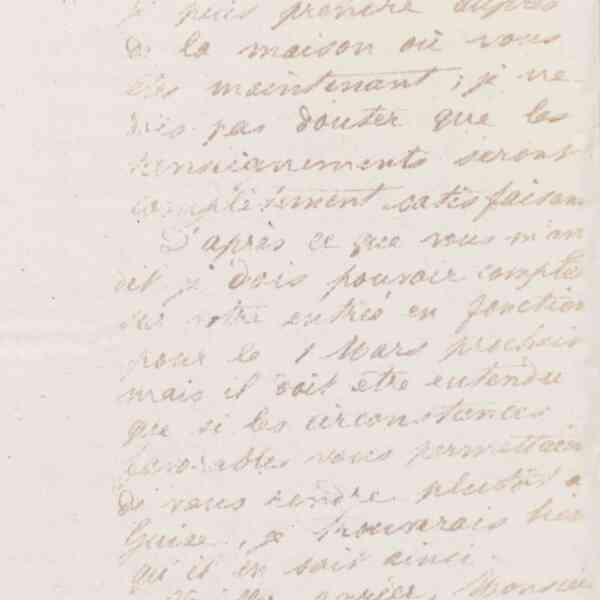 je puis prendre auprès
de la maison où vous
êtes maintenant ; je ne
dois pas douter que les
renseignements seront
complètement satisfaisan
D'après ce que vous m'an
dit je dois pouvoir compter
sur votre entrée en fonction
pour le 1 Mars prochain
mais il doit être entendu
que si les circonstances
favorables vous permettaien
de vous rendre plutôt à
Guise, je trouverais bien
qu'il en soit ainsi.
Veuillez agréer, Monsieu